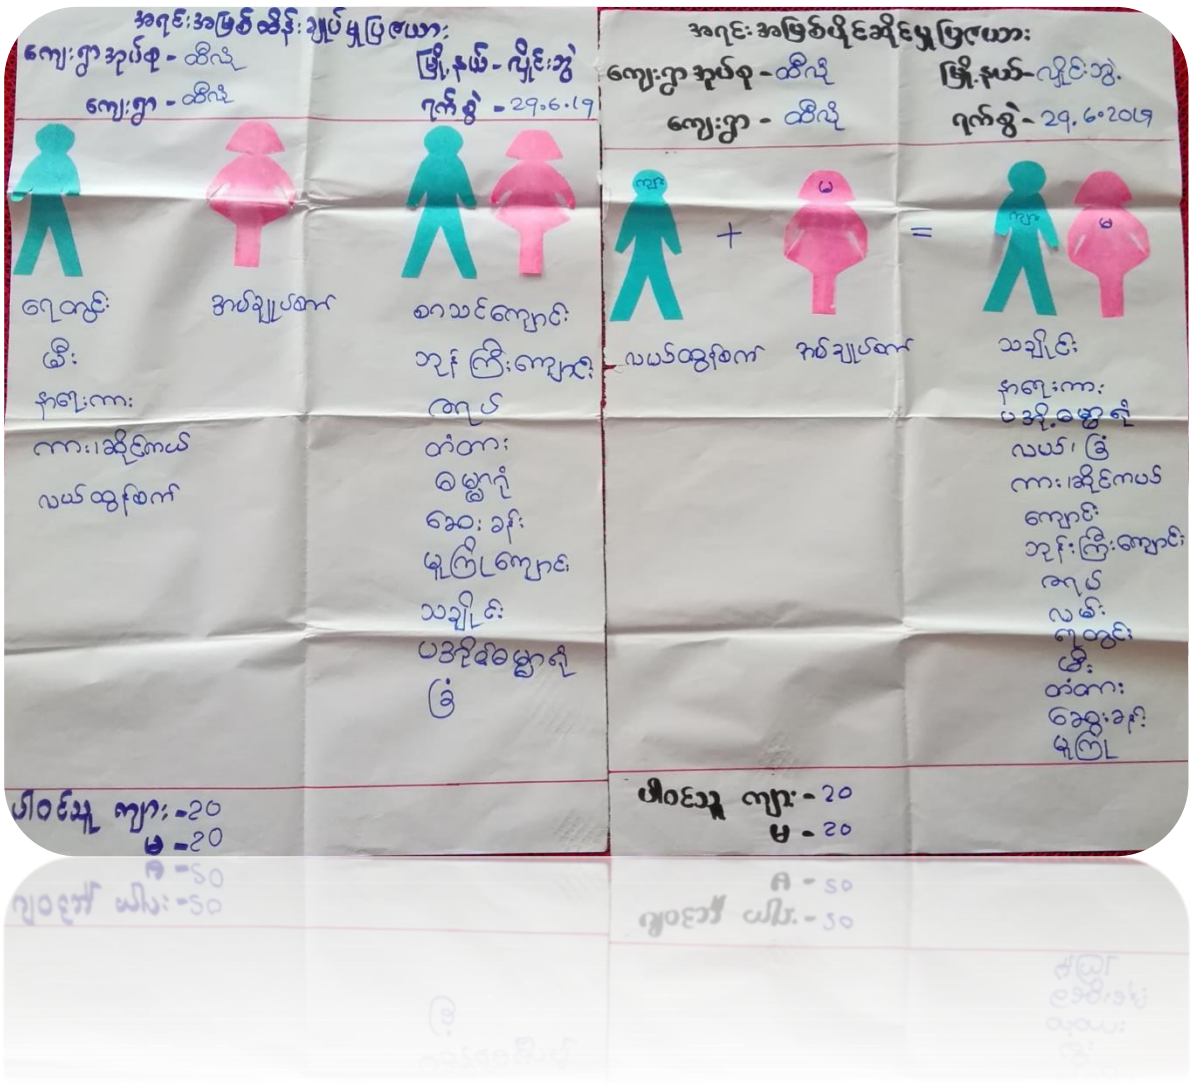 အရင်းအမြစ်ထိန်းချုပ်မှုပြဇယား
ကျေးရွာအုပ်စု - ထီလုံ
မြို့နယ် - လှိုင်းဘွဲ
ကျေးရွာ - ထီလုံ
ရက်စွဲ - 29.6.19
ရေတွင်း
မီး
နာရေးကား
ကား၊ဆိုင်ကယ်
လယ်ထွန်စက်
အပ်ချုပ်စက်
စာသင်ကျောင်း
ဘုန်းကြီးကျောင်း
ဇရပ်
တံတား
ဓမ္မာရုံ
ဆေးခန်း
မူကြိုကျောင်း
သချိုင်း
ပအိုဝ်ဓမ္မာရုံ
ခြံ
ပါဝင်သူ ကျား - 20
မ - 20
အရင်းအမြစ်ပိုင်ဆိုင်မှုပြဇယား
ကျေးရွာအုပ်စု - ထီလုံ
မြို့နယ် - လှိုင်းဘွဲ
ကျေးရွာ - ထီလုံ
ရက်စွဲ - 29.6.2019
ကျား + မ = ကျား မ
လယ်ထွန်စက်
အပ်ချုပ်စက်
သချိုင်း
နာရေးကား
ပအို့ဓမ္မာရုံ
လယ်၊ ခြံ
ကား၊ဆိုင်ကယ်
ကျောင်း
ဘုန်းကြီးကျောင်း
ဇရပ်
လမ်း
ရေတွင်း
မီး
တံတား
ဆေးခန်း
မူကြို
ပါဝင်သူ ကျား - 20
မ - 20